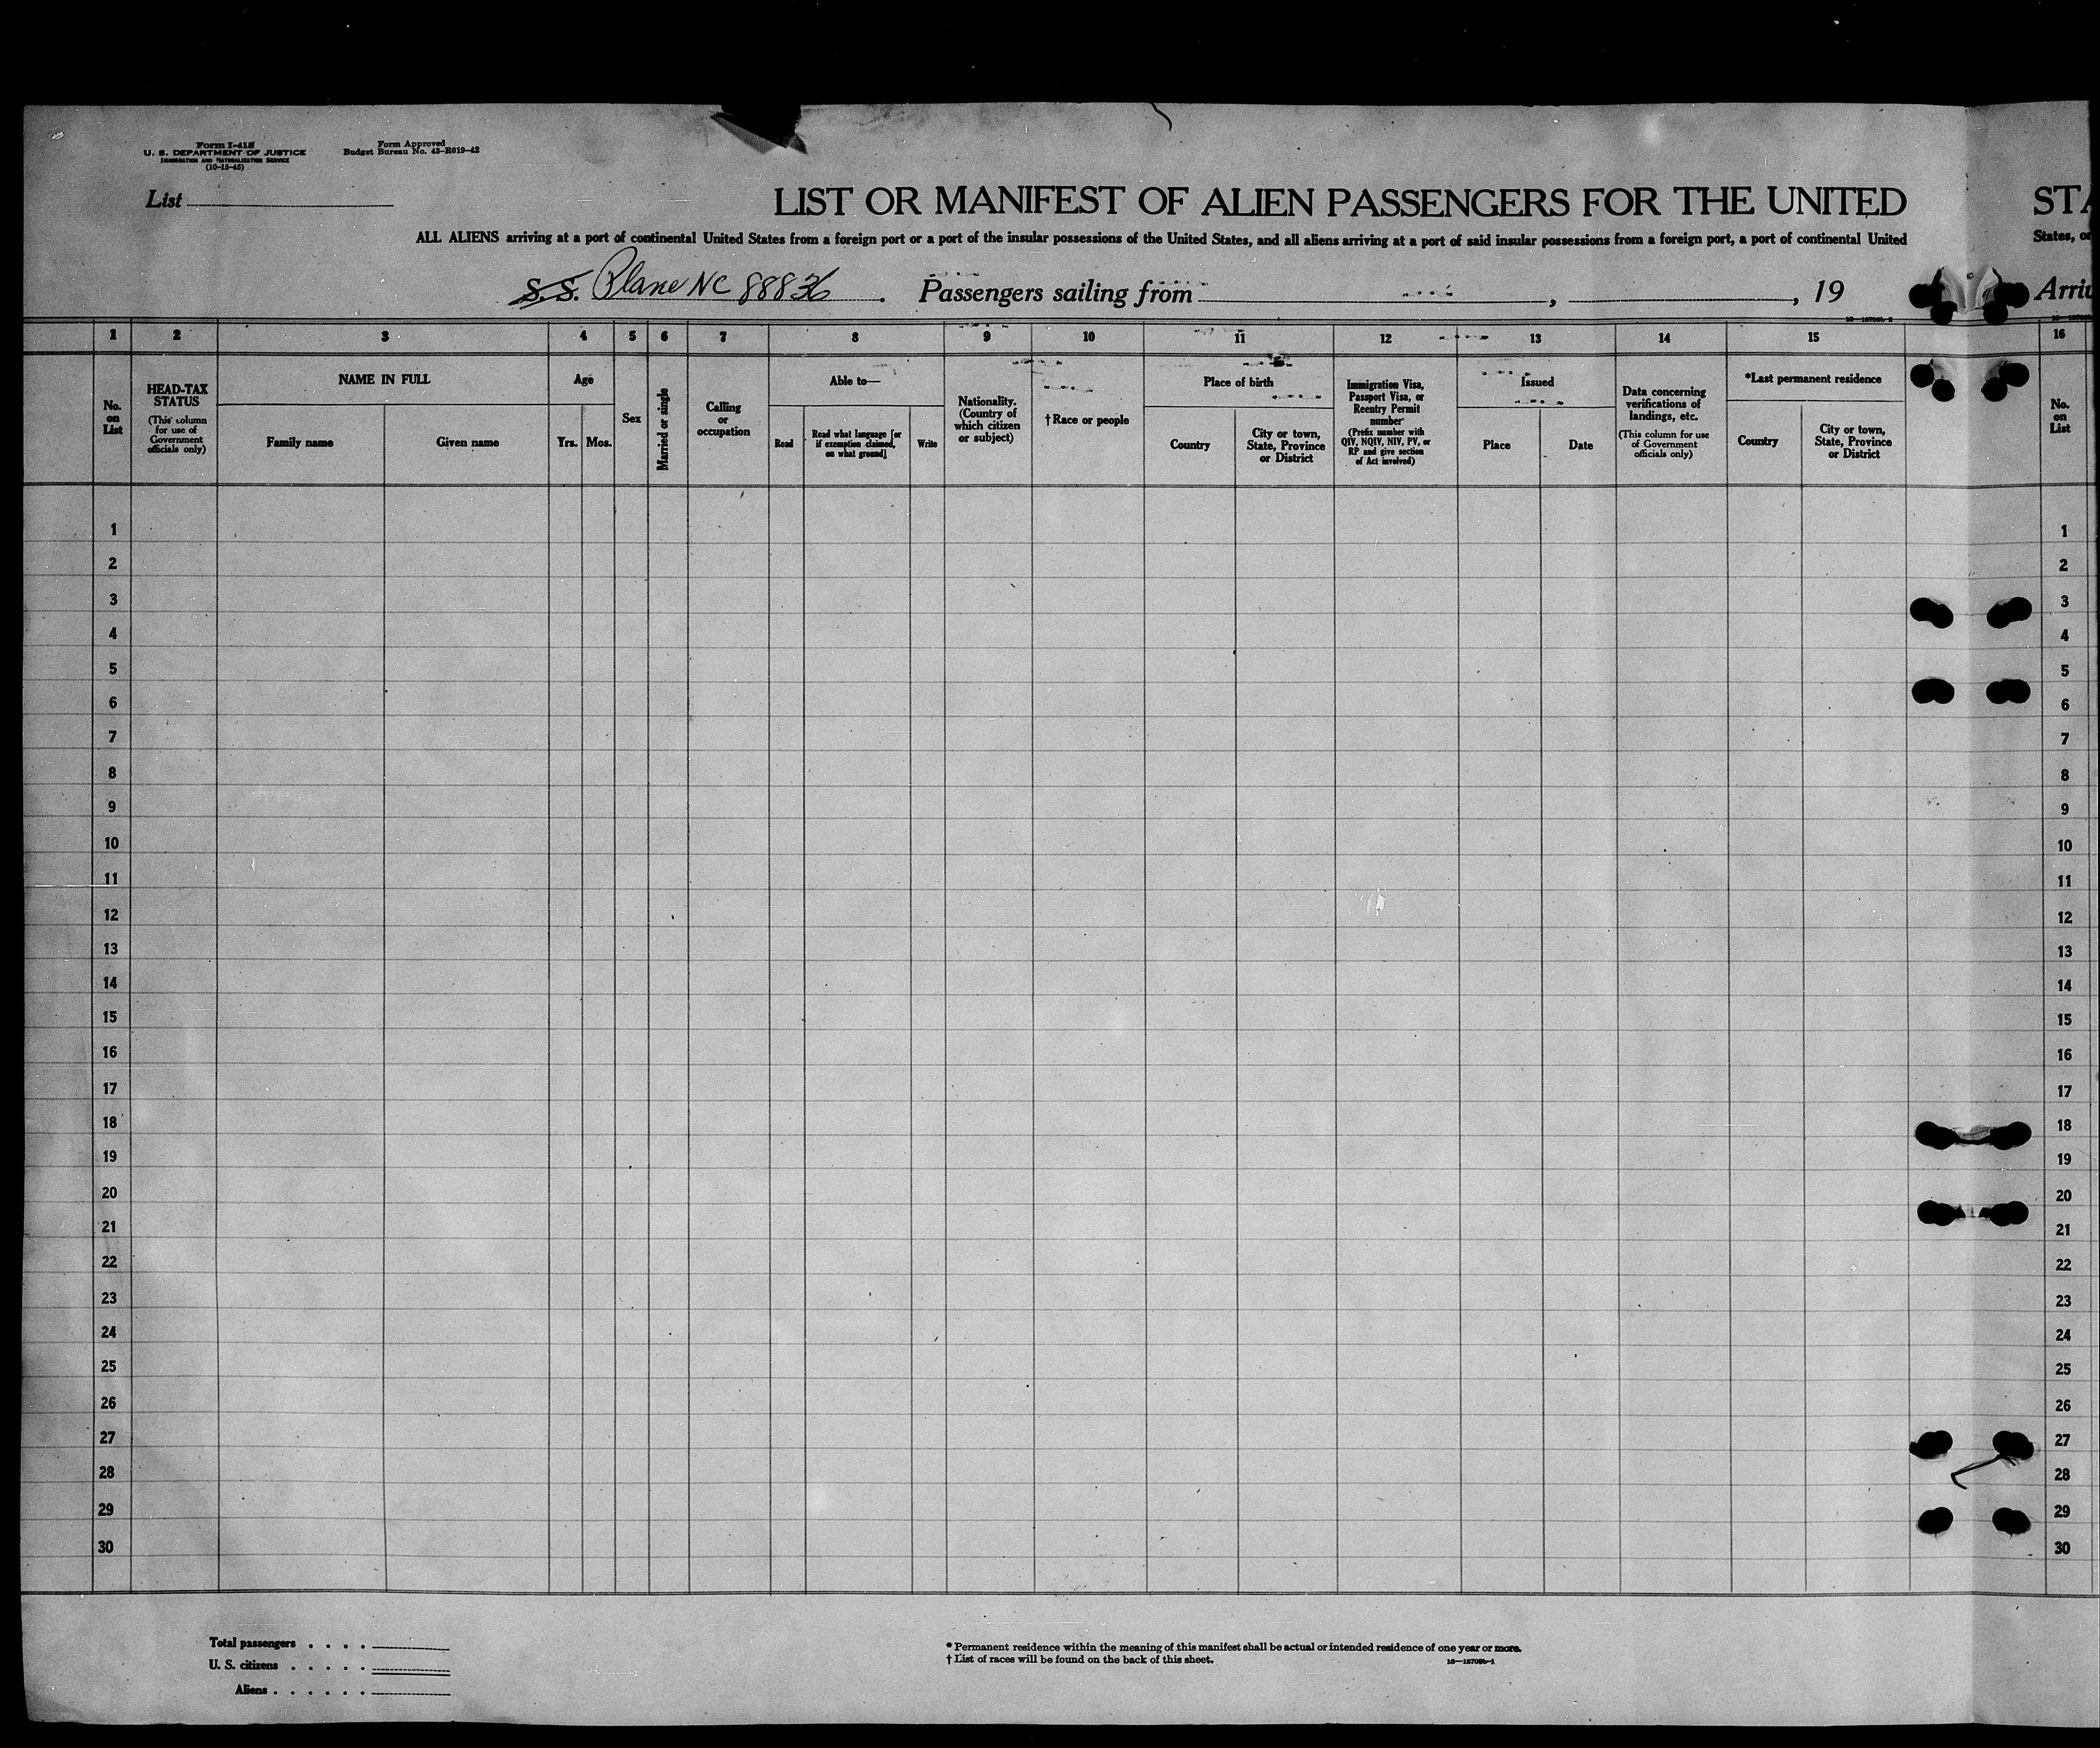 Form I-415
U. S. DEPARTMENT OF JUSTICE
IMMIGRATION AND NATURALIZATION SERVICE
(10-15-45)
Form Approved
Budget Bureau No. 43-R019-42
List
LIST OR MANIFEST OF ALIEN PASSENGERS FOR THE UNITED
STA
ALL ALIENS arriving at a port of continental United States from a foreign port or a port of the insular possessions of the United States, and all aliens arriving at a port of said insular possessions from a foreign port, a port of continental United
States, or
S.S. Plane NC 88836 . Passengers sailing from , , 19
Arriv
1 2 3 4 5 6 7 8 9 10 11 12 13 14 15 16
No. on List
HEAD-TAX STATUS
(This column for use of Government officials only)
NAME IN FULL
Family name
Given name
Age
Yrs.
Mos.
Sex
Married or single
Calling or occupation
Able to—
Read
Read what language [or if exemption claimed, on what ground]
Write
Nationality. (Country of which citizen or subject)
†Race or people
Place of birth
Country
City or town, State, Province or District
Immigration Visa, Passport Visa, or Reentry Permit number
(Prefix number with QIV, NQIV, NIV, PV, or RP and give section of Act involved)
Issued
Place
Date
Data concerning verifications of landings, etc.
(This column for use of Government officials only)
*Last permanent residence
Country
City or town, State, Province or District
No. on List
1 1
2 2
3 3
4 4
5 5
6 6
7 7
8 8
9 9
10 10
11 11
12 12
13 13
14 14
15 15
16 16
17 17
18 18
19 19
20 20
21 21
22 22
23 23
24 24
25 25
26 26
27 27
28 28
29 29
30 30
Total passengers . . . .
U. S. citizens . . . . .
Aliens . . . . . .
* Permanent residence within the meaning of this manifest shall be actual or intended residence of one year or more.
† List of races will be found on the back of this sheet.
16—18709b-1